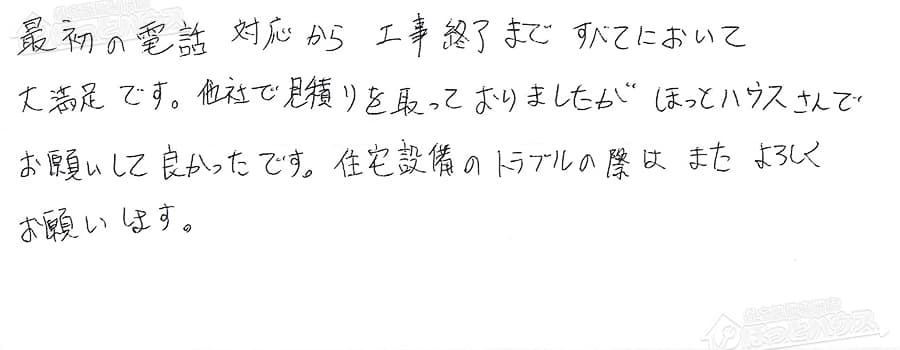 最初の電話対応から 工事終了まで すべてにおいて
大満足です。他社で見積りを取っておりましたが ほっとハウスさんで
お願いして良かったです。住宅設備のトラブルの際は また よろしく
お願いします。
住宅設備の専門館
ほっとハウス